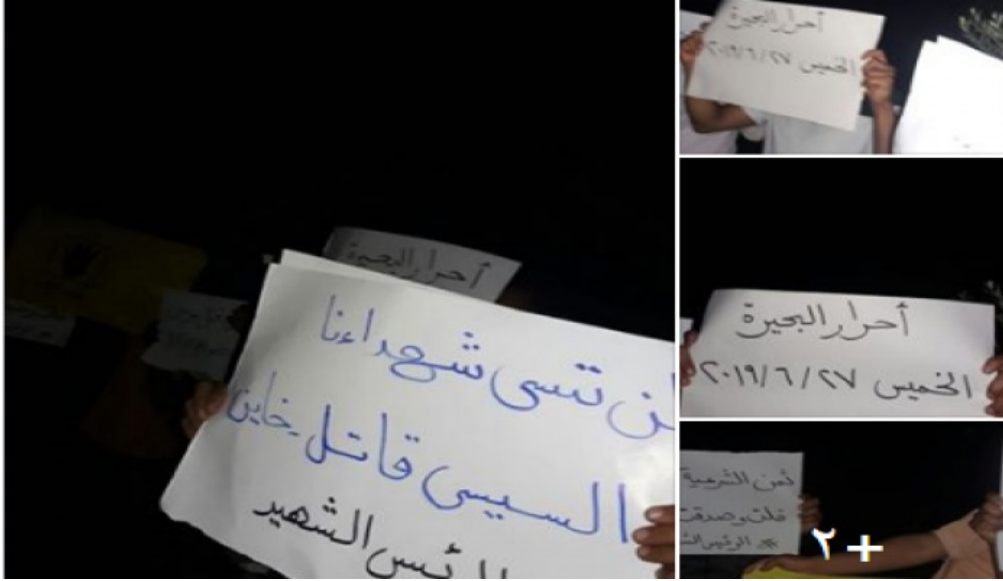 أحرار البحيرة
لن ننسى شهداءنا
السيسى قاتل خاين
الشهيد
أحرار البحيرة
الخميس ٢٠١٩/٦/٢٧
أحرار البحيرة
الخميس ٢٠١٩/٦/٢٧
ثمن الشرعية
قلت وصدقت
الرئيس
+٢